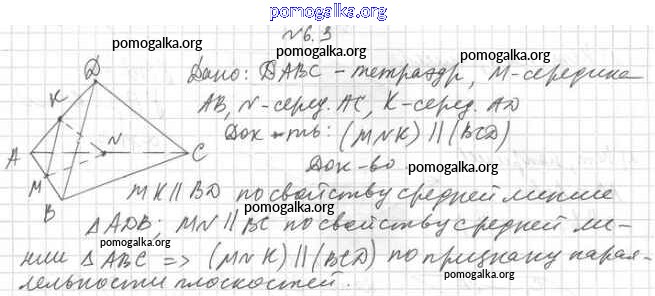 pomogalka.org
N 6.3
pomogalka.org
D
pomogalka.org
Дано: DABC - тетраэдр, M - середина
K
AB, N - серед. AC, K - серед. AD
pomogalka.org
Док-ть: (MNK) || (BCD)
N
A
C
Док-во
pomogalka.org
M
B
MK || BD по свойству средней линии
pomogalka.org
△ADB; MN || BC по свойству средней ли-
pomogalka.org
нии △ABC => (MNK) || (BCD) по признаку парал-
лельности плоскостей.
pomogalka.org